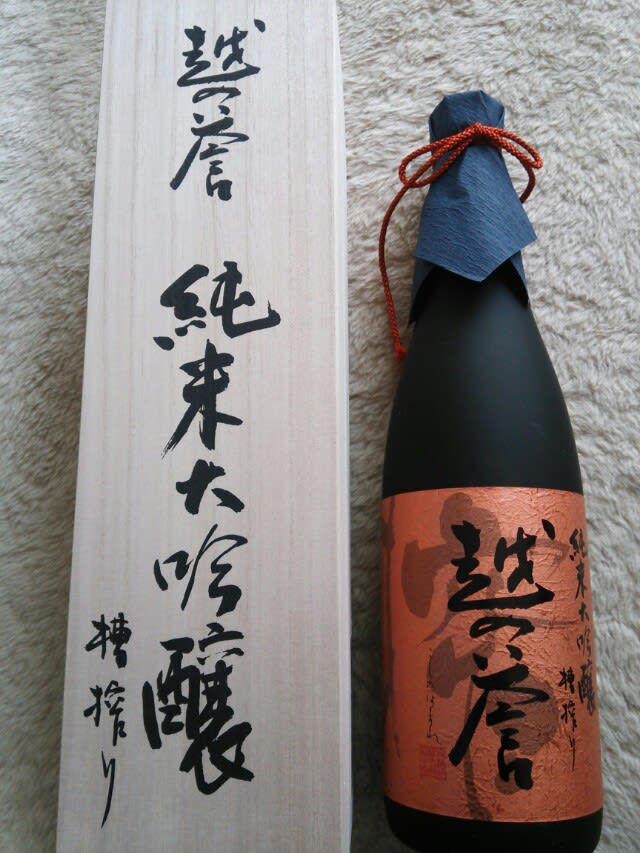 越の誉
純米大吟醸
槽搾り
越の誉
純米大吟醸
槽搾り